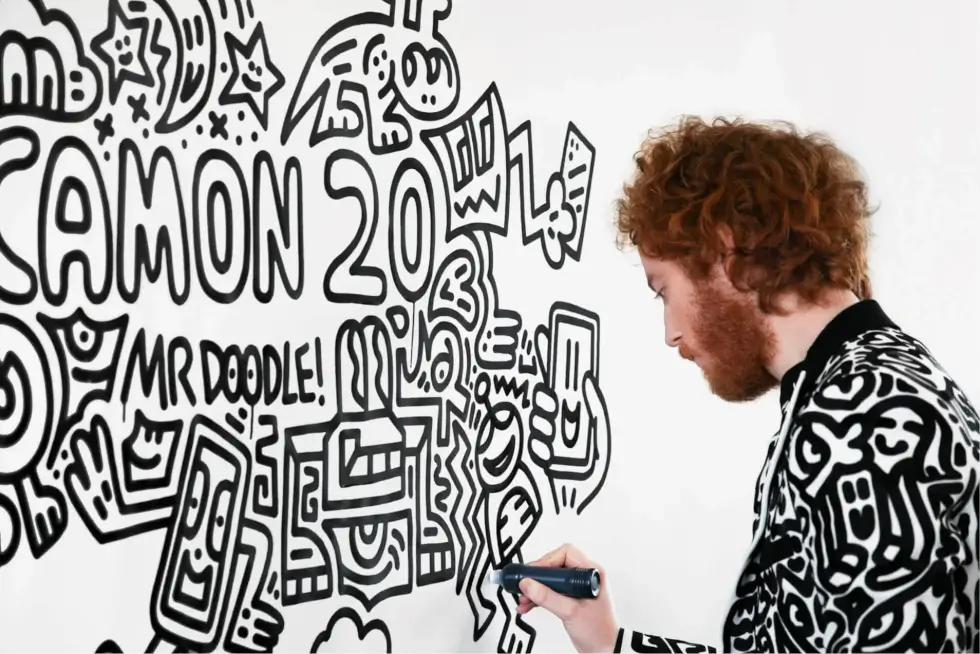 CAMON 20
MR DOODLE!